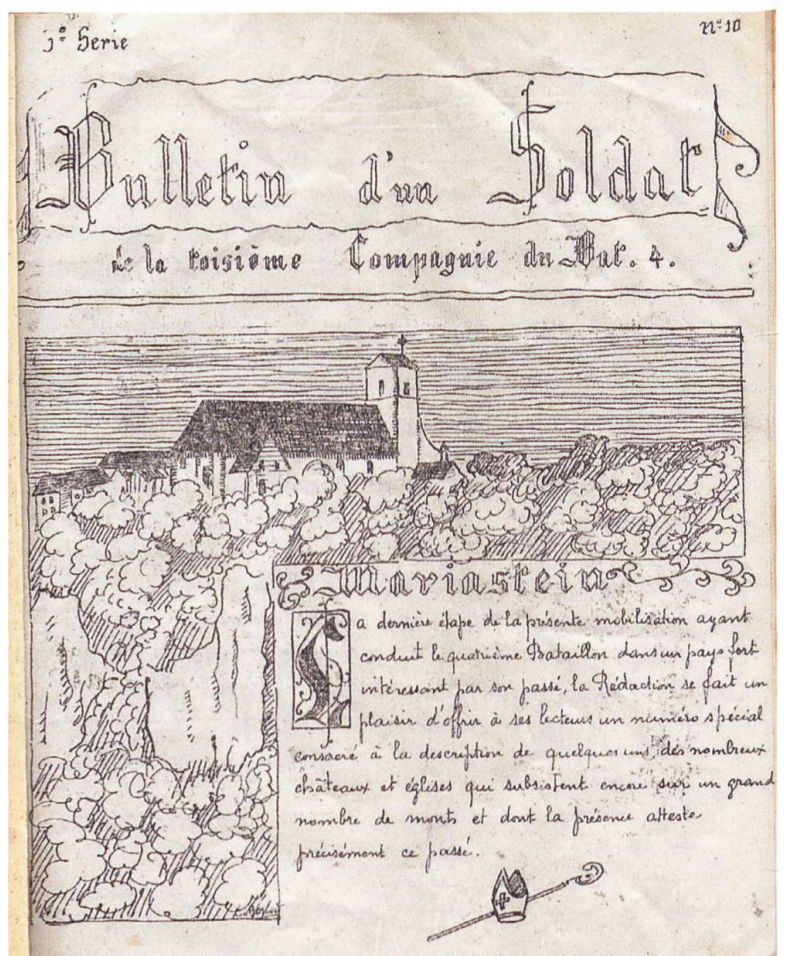 1º Serie
Nº 10
Bulletin d'un Soldat
de la troisième Compagnie du Bat. 4.
Mariastein
La dernière étape de la présente mobilisation ayant
conduit le quatrième Bataillon dans un pays fort
intéressant par son passé, la Rédaction se fait un
plaisir d'offrir à ses lecteurs un numéro spécial
consacré à la description de quelques uns, des nombreux
châteaux et églises qui subsistent encore sur un grand
nombre de monts et dont la présence atteste
précisément ce passé.